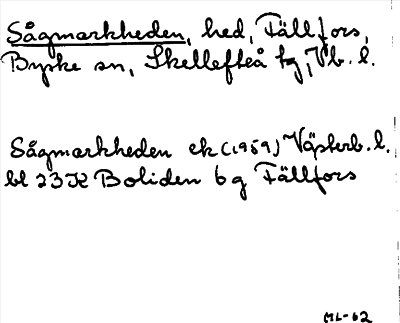 Sågmarkheden, hed, Fällfors,
Byske sn, Skellefteå tg, Vb. l.
Sågmarkheden ek (1959) Västerb. l.
bl 23 K Boliden 6 g Fällfors
ML-62